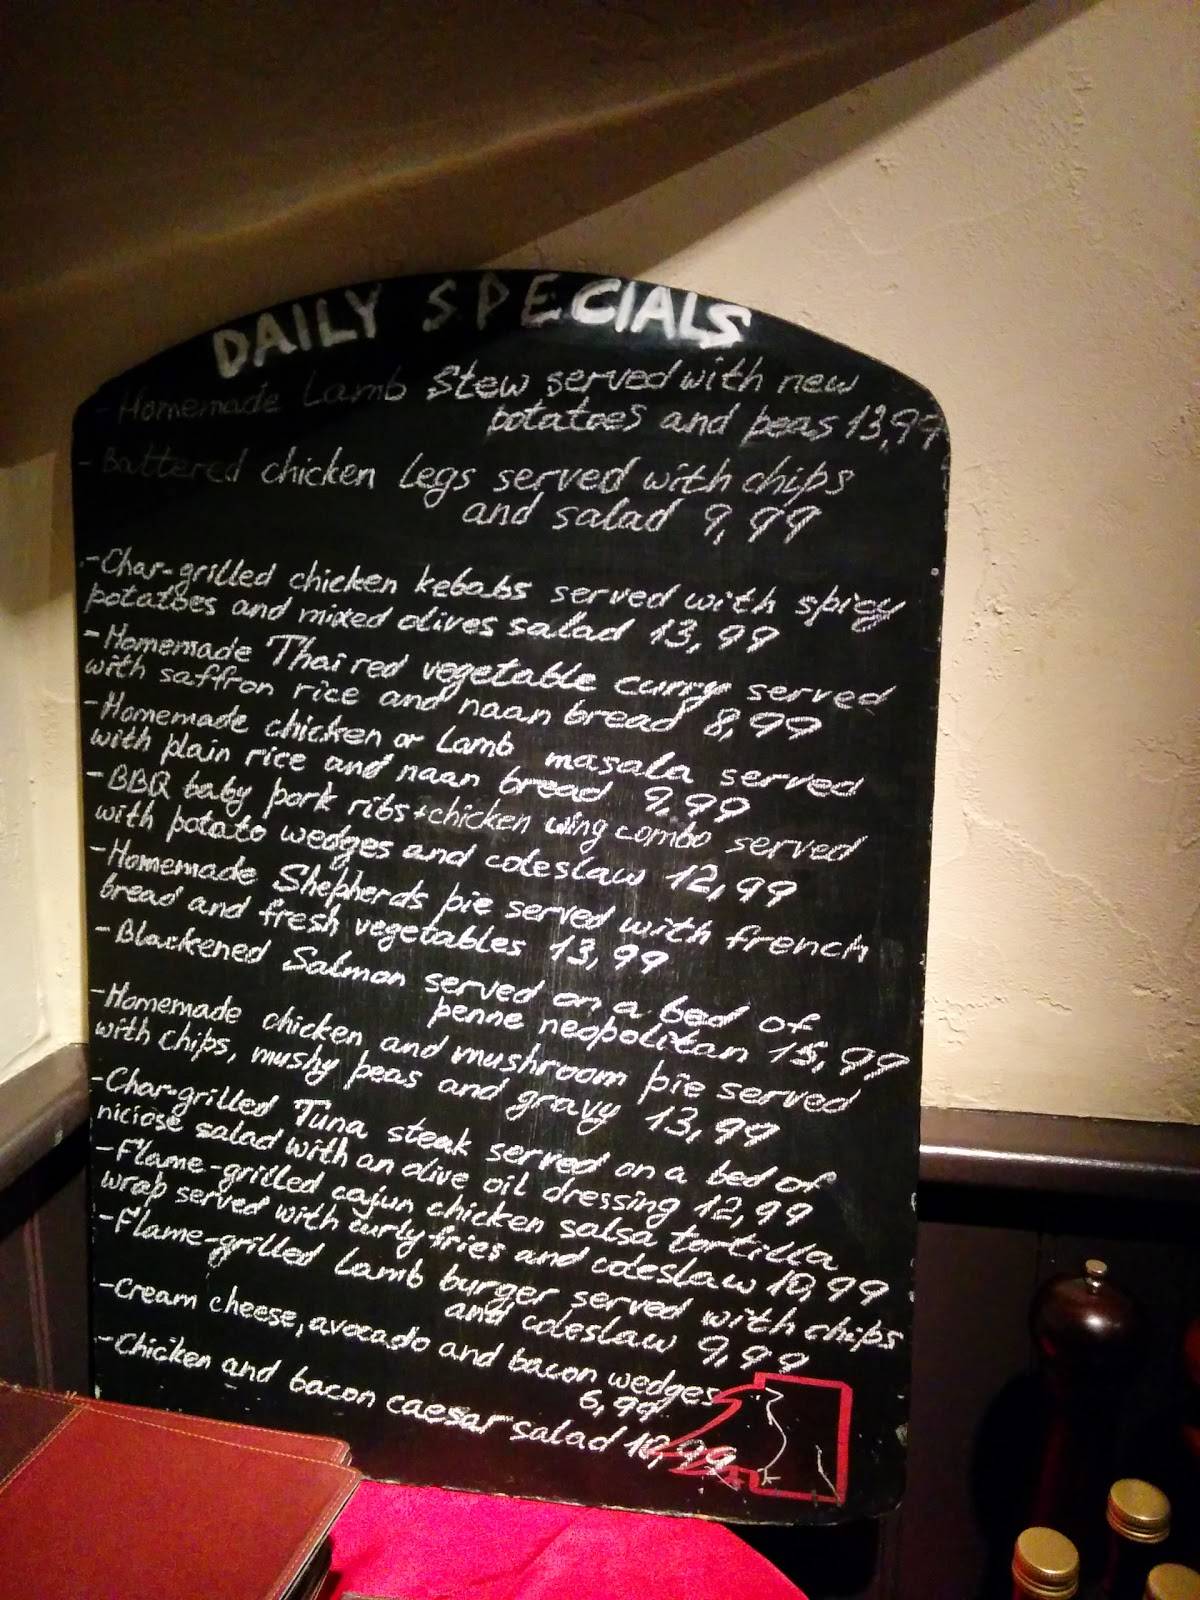 DAILY SPECIALS
- Homemade Lamb Stew served with new
potatoes and peas 13,99
- Battered chicken legs served with chips
and salad 9,99
- Char-grilled chicken kebabs served with spicy
potatoes and mixed olives salad 13,99
- Homemade Thai red vegetable curry served
with saffron rice and naan bread 8,99
- Homemade chicken or Lamb masala served
with plain rice and naan bread 9,99
- BBQ baby pork ribs + chicken wing combo served
with potato wedges and coleslaw 12,99
- Homemade Shepherds pie served with french
bread and fresh vegetables 13,99
- Blackened Salmon served on a bed of
penne neopolitan 15,99
- Homemade chicken and mushroom pie served
with chips, mushy peas and gravy 13,99
- Char-grilled Tuna steak served on a bed of
niciose salad with an olive oil dressing 12,99
- Flame-grilled cajun chicken salsa tortilla
wrap served with curly fries and coleslaw 10,99
- Flame-grilled Lamb burger served with chips
and coleslaw 9,99
- Cream cheese, avocado and bacon wedges
6,99
- Chicken and bacon caesar salad 10,99